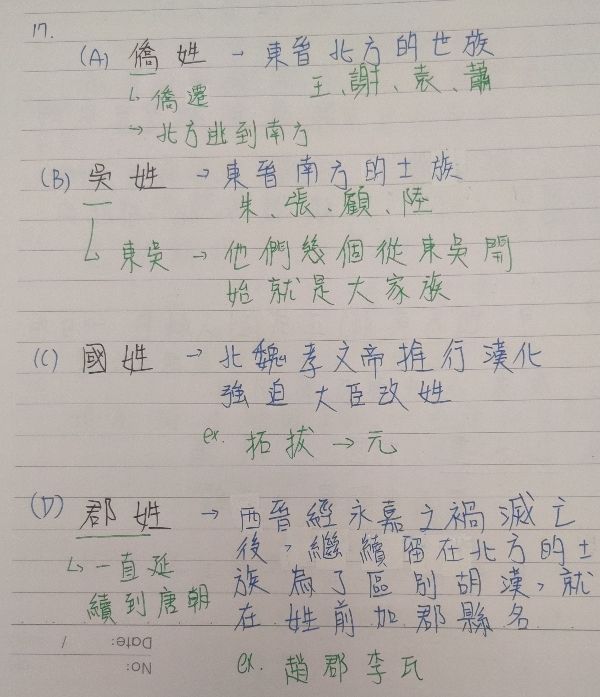 17.
(A) 僑姓 → 東晉北方的世族
王、謝、袁、蕭
↳ 僑遷
→ 北方逃到南方
(B) 吳姓 → 東晉南方的士族
朱、張、顧、陸
↳ 東吳 → 他們幾個從東吳開
始就是大家族
(C) 國姓 → 北魏孝文帝推行漢化
強迫大臣改姓
ex. 拓拔 → 元
(D) 郡姓 → 西晉經永嘉之禍滅亡
後，繼續留在北方的士
族為了區別胡漢，就
在姓前加郡縣名
↳ 一直延
續到唐朝
ex. 趙郡李氏
Date: /
No: